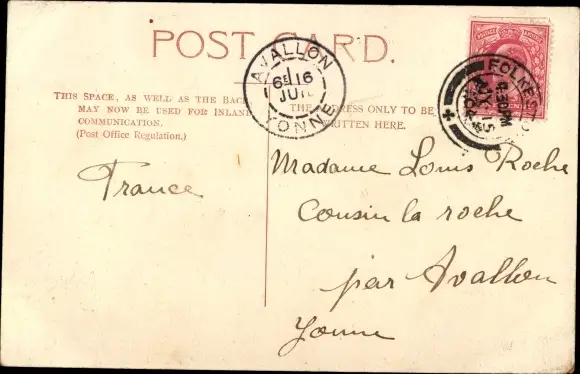 POST CARD.
THIS SPACE, AS WELL AS THE BACK
MAY NOW BE USED FOR INLAND
COMMUNICATION.
(Post Office Regulation.)
THE ADDRESS ONLY TO BE
WRITTEN HERE.
AVALLON
6E 16
JUIL
YONNE
FOLKESTO
4.30PM
15
04
France
Madame Louis Roche
Cousin la roche
par Avallon
Yonne